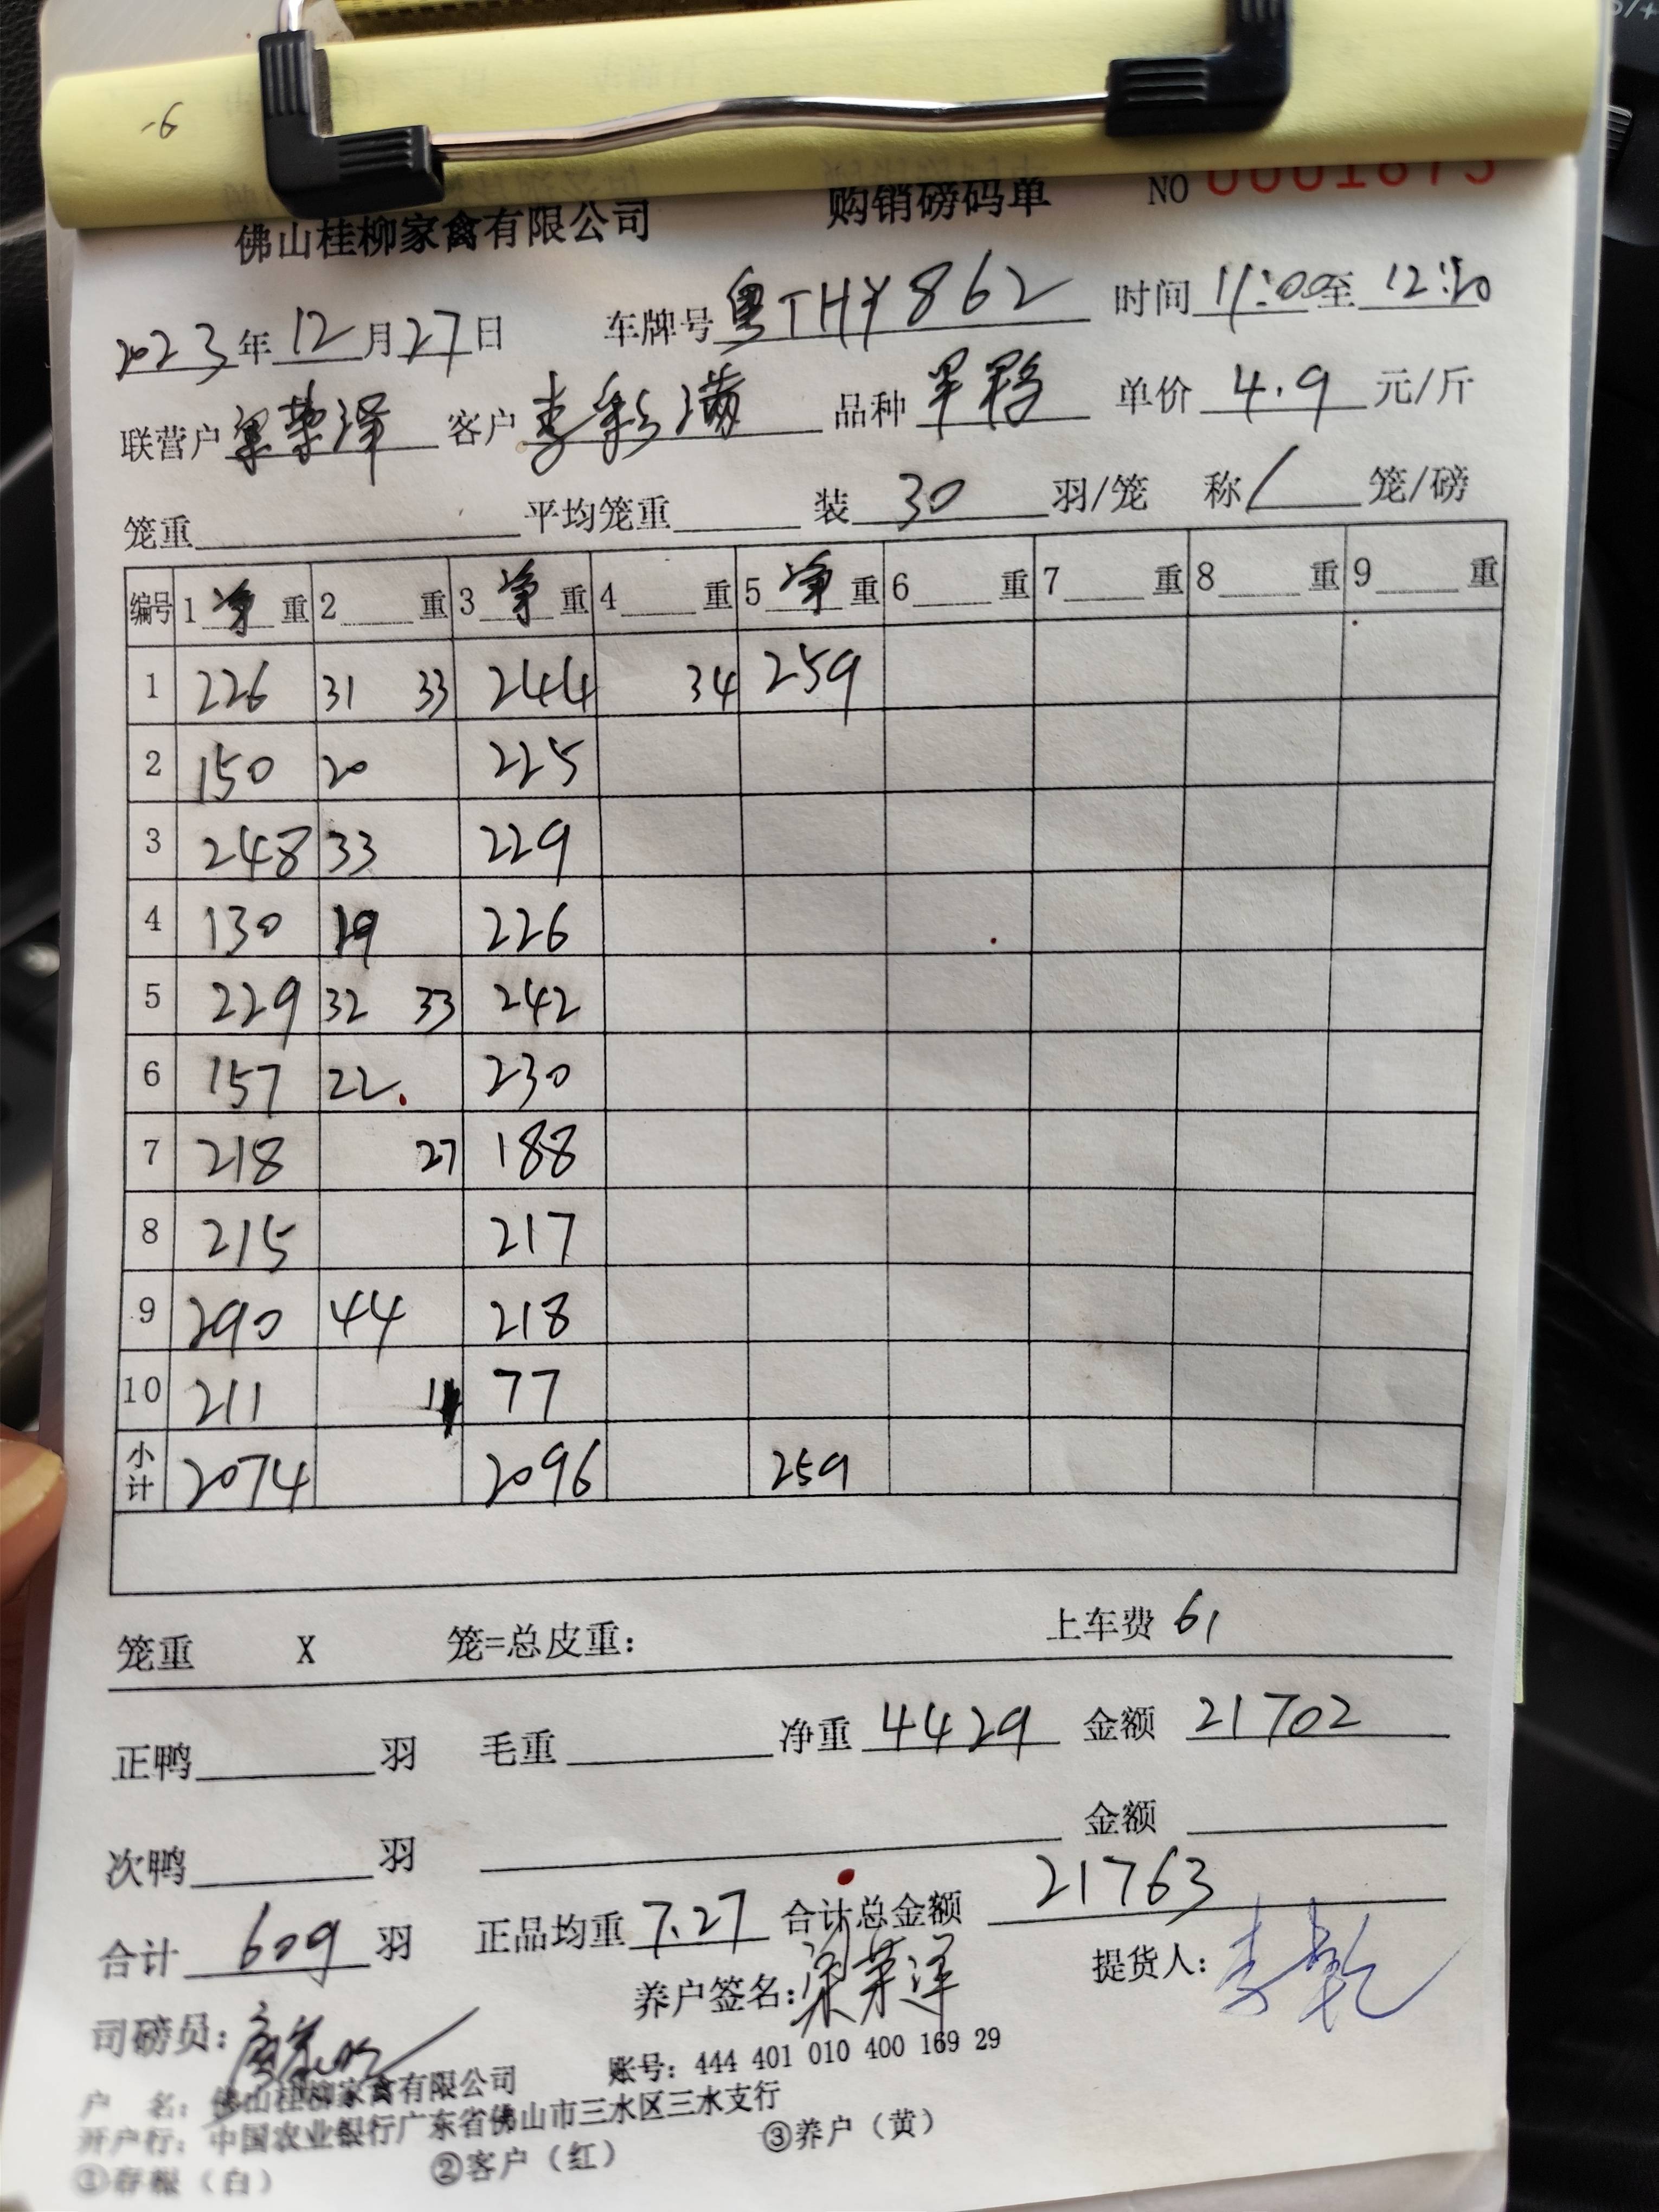 -6
佛山桂柳家禽有限公司 购销磅码单 NO 0001875
2023年12月27日 车牌号粤THY862 时间11:00至12:20
联营户梁荣泽 客户李彩满 品种 单价4.9元/斤
笼重 平均笼重 装30羽/笼 称/笼/磅
编号 1净重 2重 3净重 4重 5净重 6重 7重 8重 9重
1 226 31 33 244 34 259
2 150 20 225
3 248 33 229
4 130 19 226
5 229 32 33 242
6 157 22. 230
7 218 27 188
8 215 217
9 290 44 218
10 211 11 77
小计 2074 2096 259
笼重 X 笼=总皮重: 上车费 61
正鸭 羽 毛重 净重4429 金额21702
次鸭 羽 金额
合计609羽 正品均重7.27 合计总金额21763
司磅员: 养户签名:梁荣泽 提货人:
户 名:佛山桂柳家禽有限公司 账号:444 401 010 400 169 29
开户行:中国农业银行广东省佛山市三水区三水支行
①存根(白) ②客户(红) ③养户(黄)